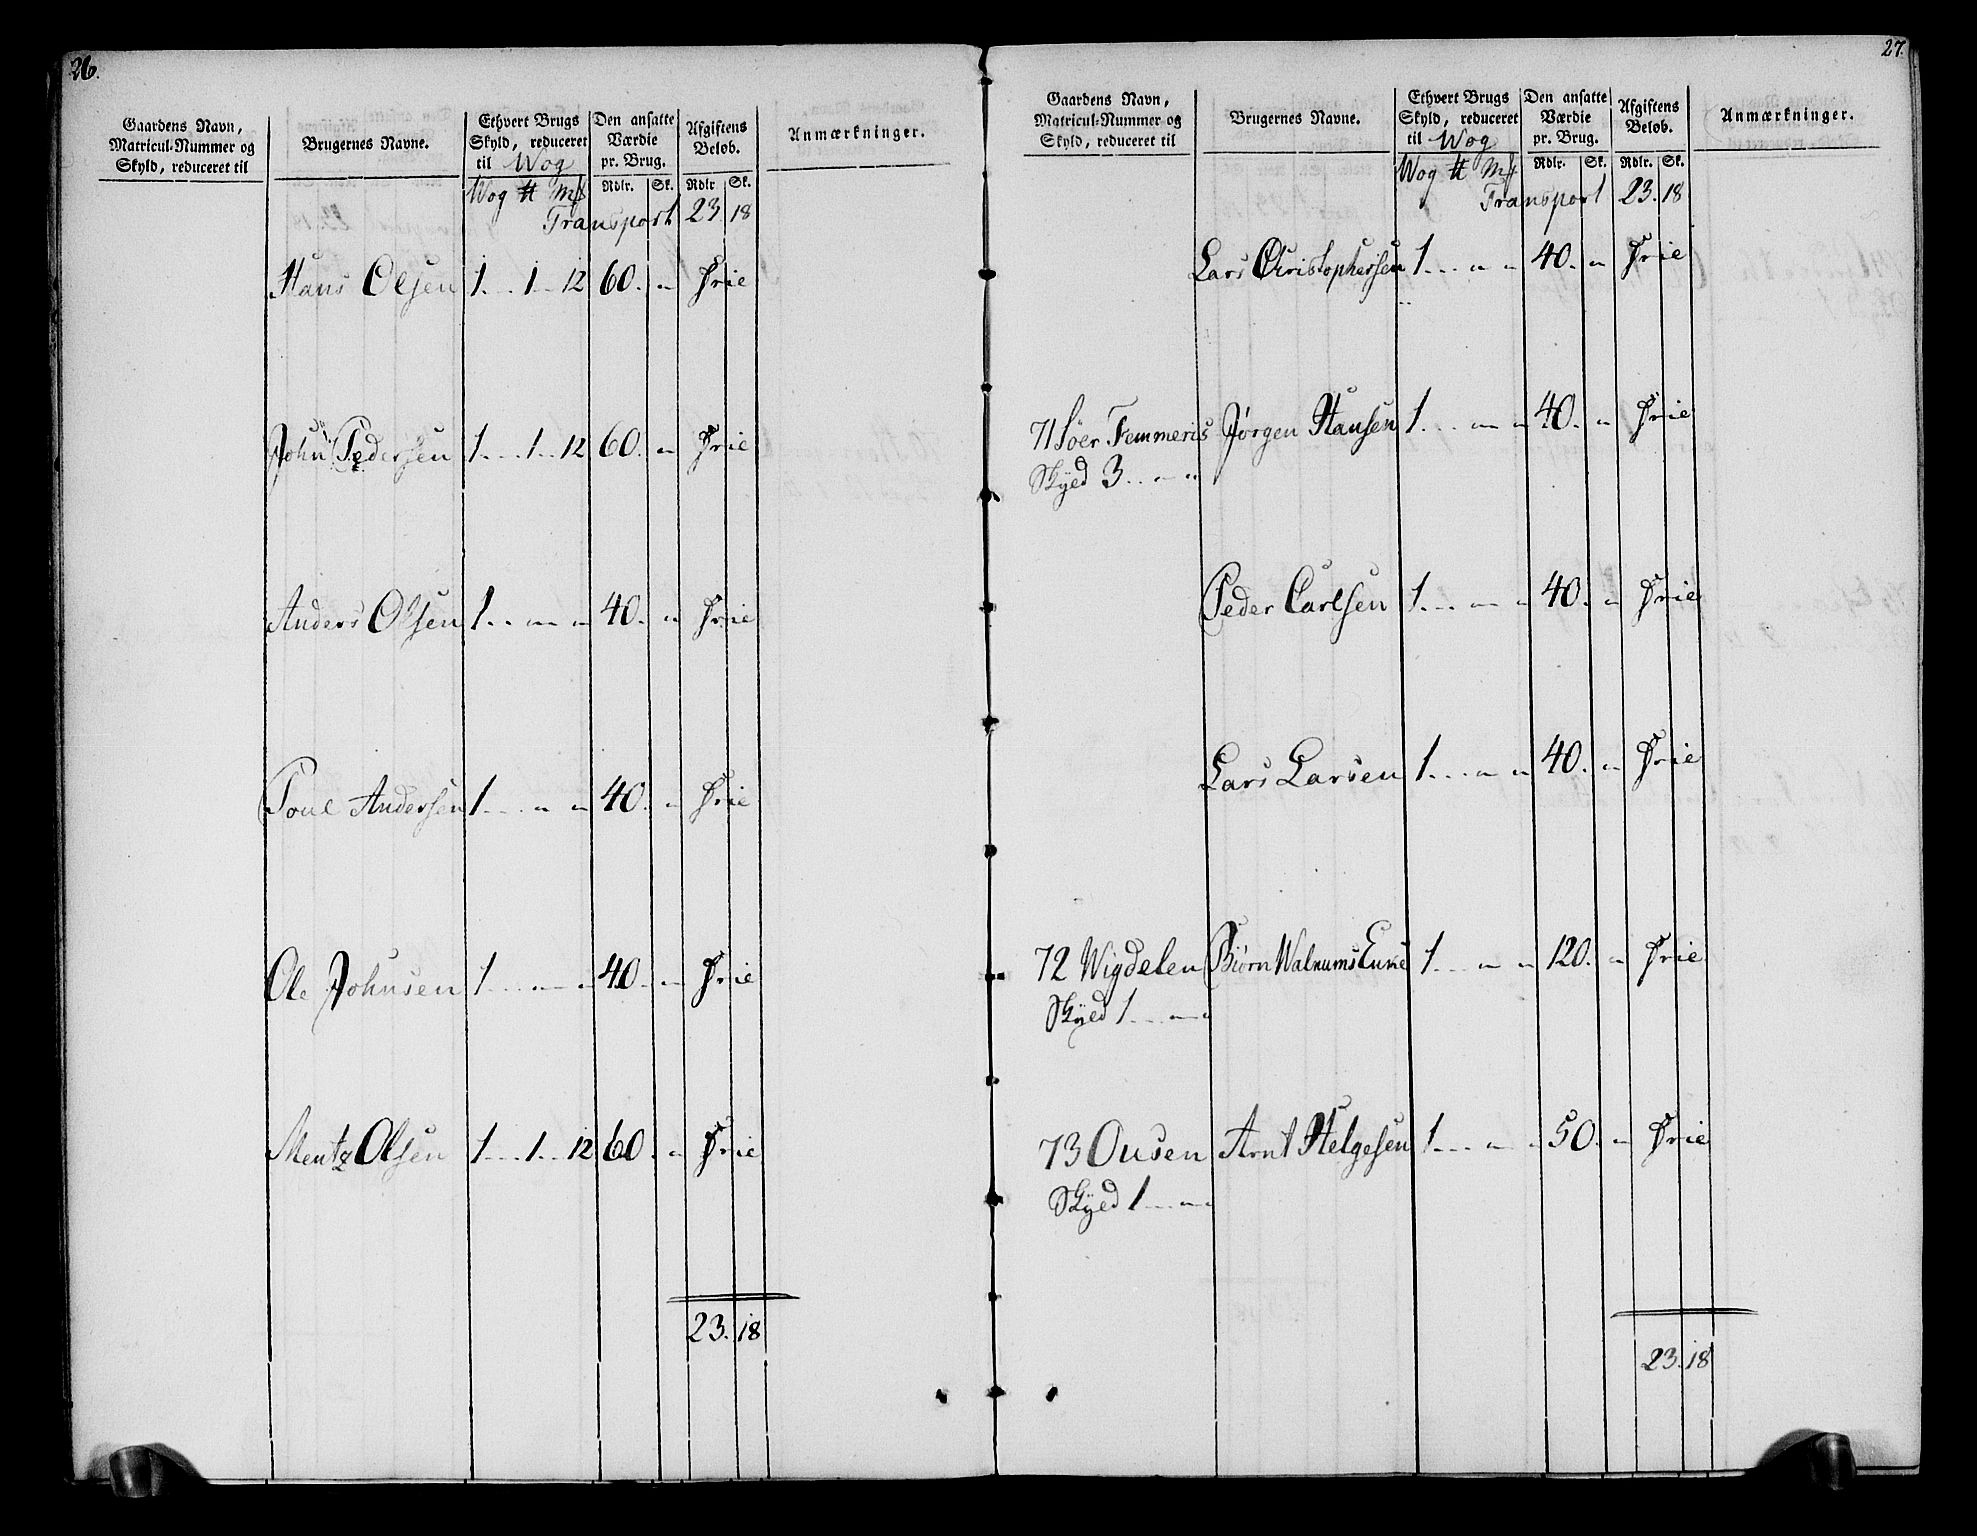 26.
Gaardens Navn,
Matricul-Nummer og
Skyld, reduceret til
Brugernes Navne.
Ethvert Brugs
Skyld, reduceret
til Wog
Den ansatte
Værdie
pr. Brug.
Afgiftens
Beløb.
Anmærkninger.
Wog ℔ Mk
Rdlr. Sk. Rdlr Sk.
Transport 23 18
Hans Olsen 1 . . . 1 . . 12 60. „ Frie
John Pedersen 1 . . . 1 . . 12 60. „ Frie
Anders Olsen 1 . . „ „ 40. „ Frie
Poul Andersen 1 . . . „ „ 40. „ Frie
Ole Johnsen 1 . . . „ „ 40. „ Frie
Mentz Olsen 1 . . . 1 . . 12 60. „ Frie
23. 18
27.
Gaardens Navn,
Matricul-Nummer og
Skyld, reduceret til
Brugernes Navne.
Ethvert Brugs
Skyld, reduceret
til Wog
Den ansatte
Værdie
pr. Brug.
Afgiftens
Beløb.
Anmærkninger.
Wog ℔ Mk
Rdlr. Sk. Rdlr. Sk.
Transport 23. 18
Lars Christophersen 1 . . . „ „ 40. „ Frie
71 Söer Femmeris Jörgen Hansen 1 . . . „ „ 40. „ Frie
Skyed 3 . . „ „
Peder Carlsen 1 . . . „ „ 40. „ Frie
Lars Larsen 1 . . . „ „ 40. „ Frie
72 Wigdelen Biørn Walnums Enke 1 . . . „ „ 120. „ Frie
Skyed 1 . . . „ „
73 Ousen Arnt Helgesen 1 . . . „ „ 50. „ Frie
Skyed 1 . . . „ „
23. 18